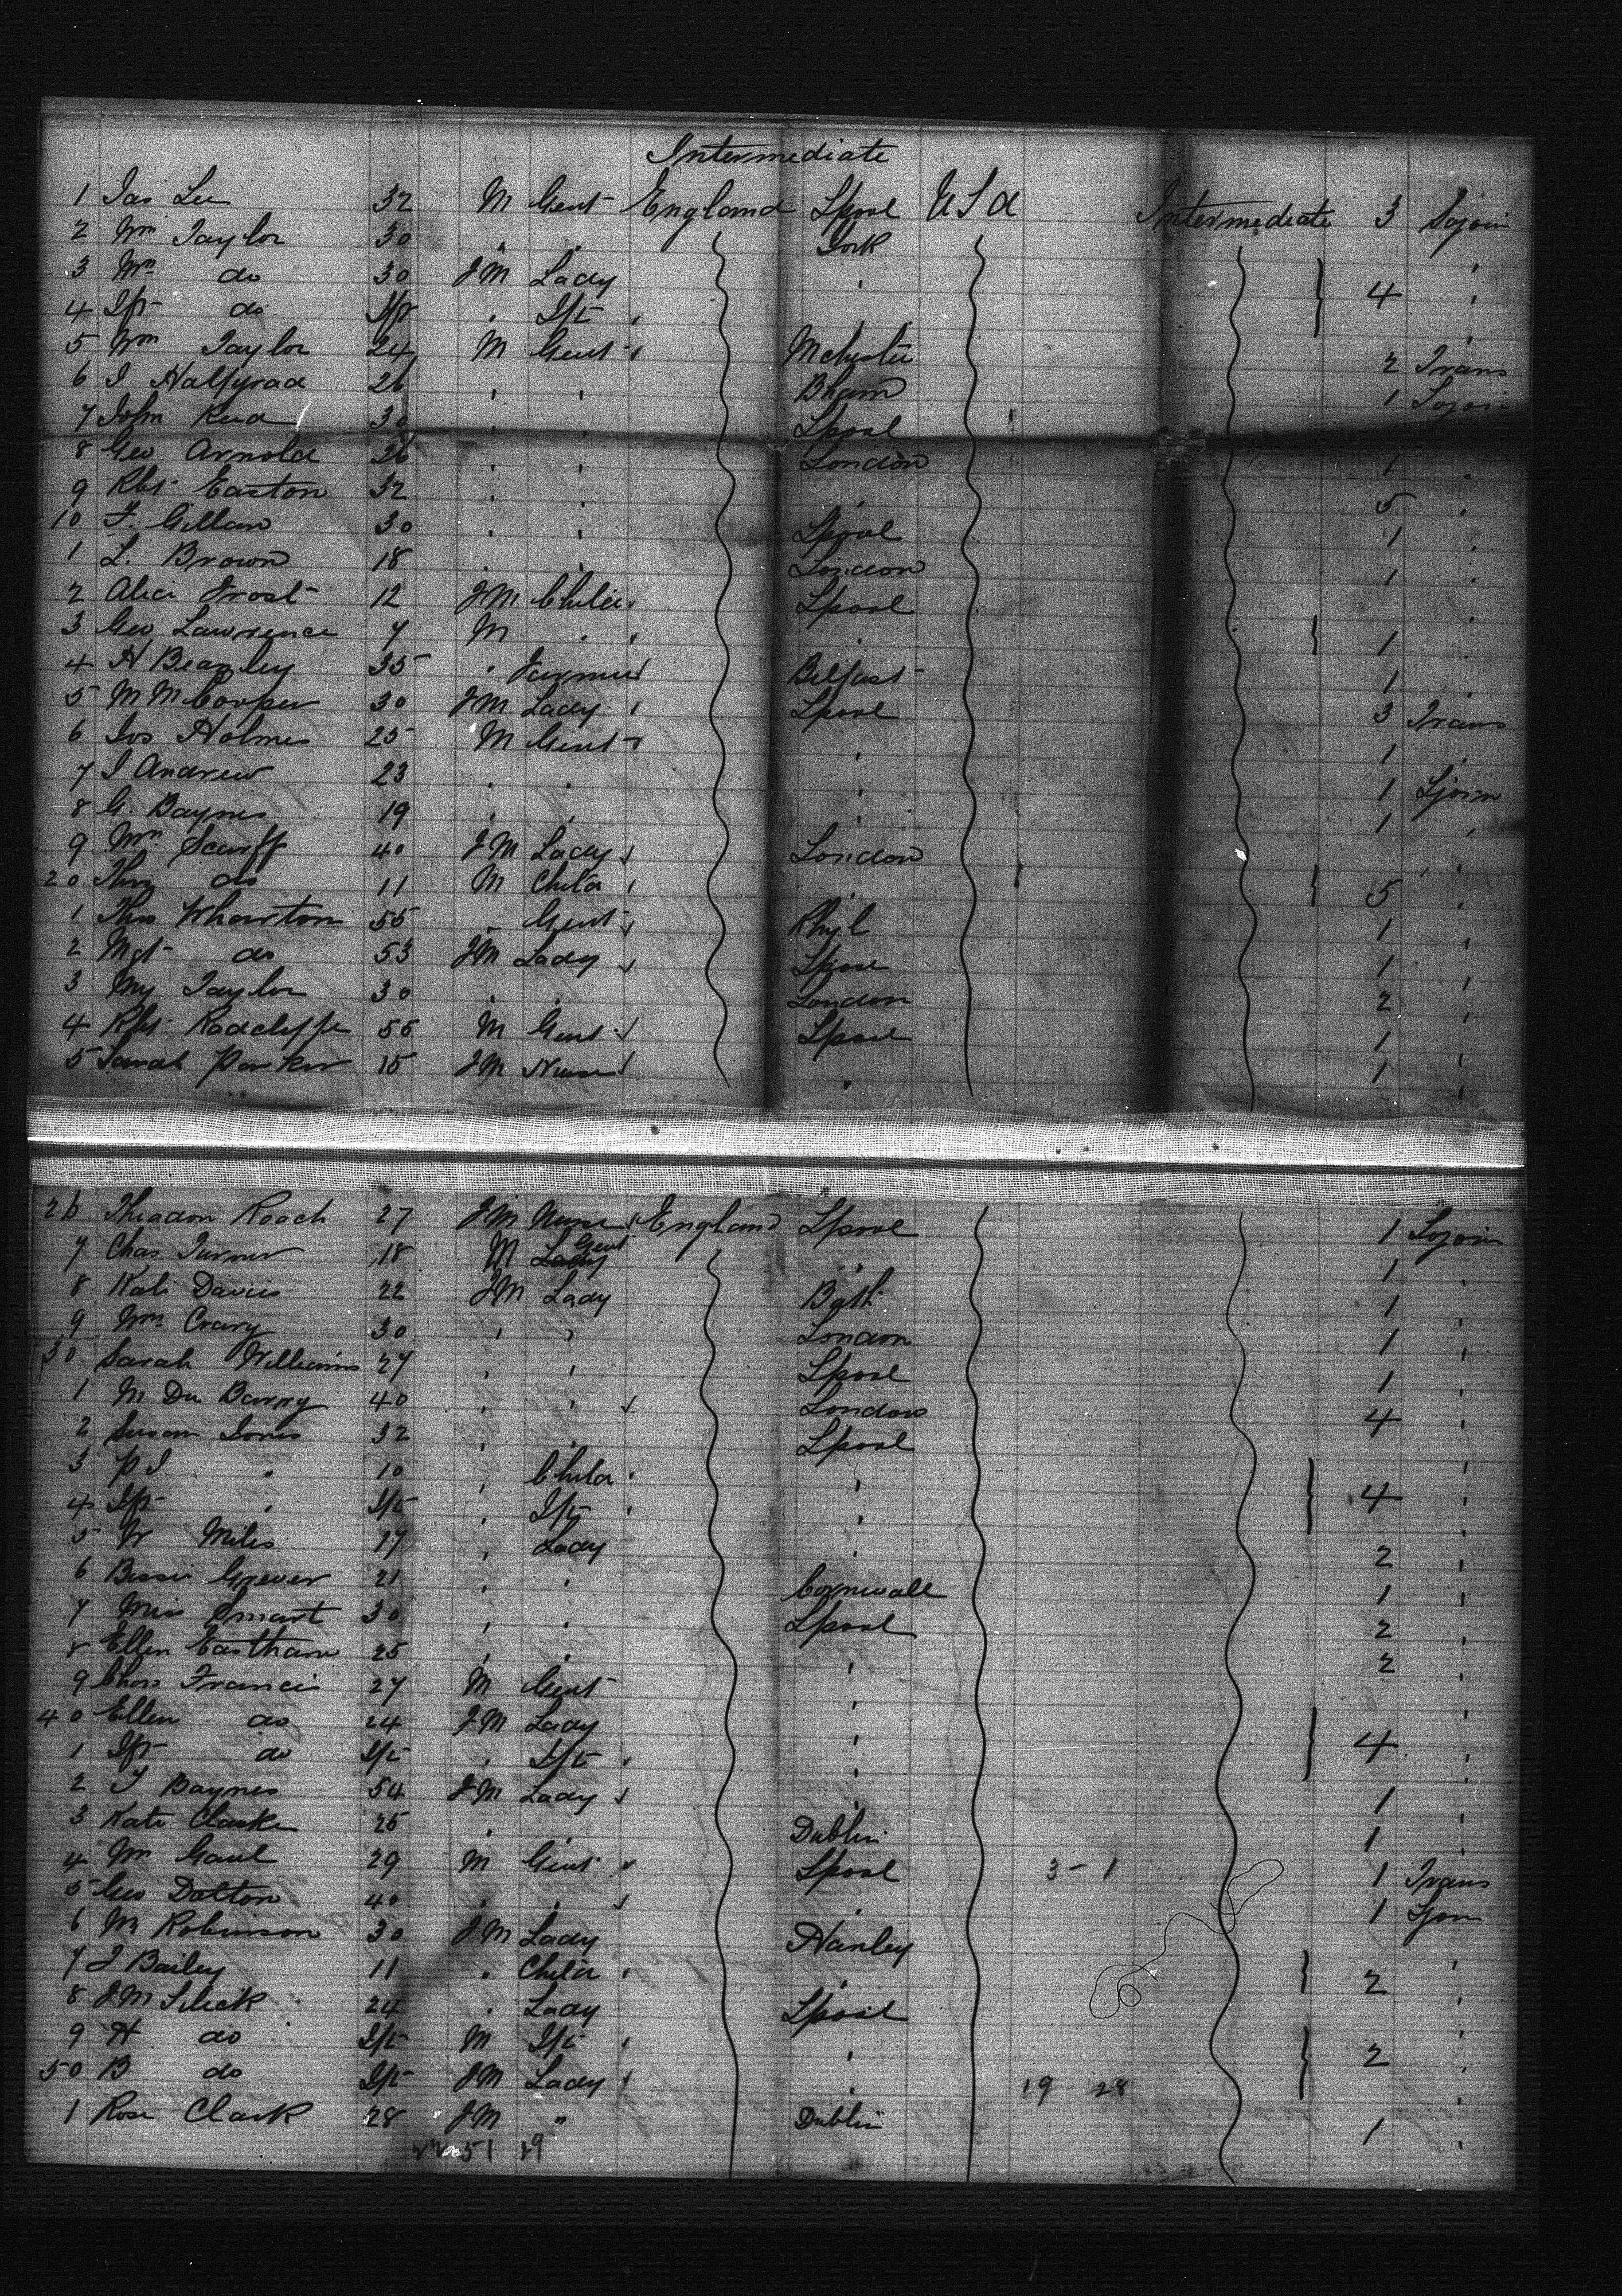 Intermediate
1 Jas Lee 32 M Gent England Lpool U S A Intermediate 3 Sojoin
2 Wm Taylor 30 " " York
3 Mrs do 30 FM Lady " 4 "
4 Ift do Ift " Ift "
5 Wm Taylor 24 M Gent Mchester 2 Trans
6 J Halfyrad 26 " " Bham 1 Sojoin
7 John Reid 30 " " Lpool
8 Geo Arnold 26 " " London 1 "
9 Rbt Easton 32 " " " 5 "
10 F. Gillan 30 " " Lpool 1 "
1 L. Brown 18 " " London 1 "
2 Alice Frost 12 FM Child Lpool
3 Geo Lawrence 7 M " " 1 "
4 H Beazley 35 " Farmer Belfast 1 "
5 M M Cooper 30 FM Lady Lpool 3 Trans
6 Jos Holmes 25 M Gent " 1 "
7 J Andrew 23 " " " 1 Sjoin
8 G. Baynes 19 " " " 1 "
9 Mrs Scarff 40 FM Lady London "
20 Thos do 11 M Child " 5 "
1 Thos Wharton 55 " Gent Rhyl 1 "
2 Mgt do 53 FM Lady Lpool 1 "
3 My Taylor 30 " " London 2 "
4 Rbt Radcliffe 55 M Gent Lpool 1 "
5 Sarah Parker 15 FM Nurse " 1 "
26 Roach 27 FM Nurse England Lpool 1 Sojoin
7 Chas Turner 18 M Gent " 1 "
8 Kate Davies 22 FM Lady Bath 1 "
9 Mrs Crary 30 " " London 1 "
30 Sarah Williams 27 " " Lpool 1 "
1 M Du Barry 40 " " London 4 "
2 Susan Jones 32 " " Lpool
3 P J " 10 " Child " "
4 Ift " Ift " Ift " 4 "
5 W Miles 17 " Lady " 2 "
6 Bessie Grever 21 " " Cornwall 1 "
7 Miss Smart 30 " " Lpool 2 "
8 Ellen Eastham 25 " " " 2 "
9 Chas Francis 27 M Gent " "
40 Ellen do 24 FM Lady " 4 "
1 Ift do Ift " Ift " "
2 J Baynes 54 FM Lady " 1 "
3 Kate Clarke 25 " " Dublin 1 "
4 Wm Gaul 29 M Gent Lpool 3-1 1 Trans
5 Geo Dolton 40 " " " 1 Sjoin
6 M Robinson 30 FM Lady Hanley "
7 J Bailey 11 " Child " 2 "
8 24 " Lady Lpool "
9 H do Ift M Ift " 2 "
50 B do Ift FM Lady " 19 28 "
1 Rose Clark 28 FM " Dublin 1 "
51 29